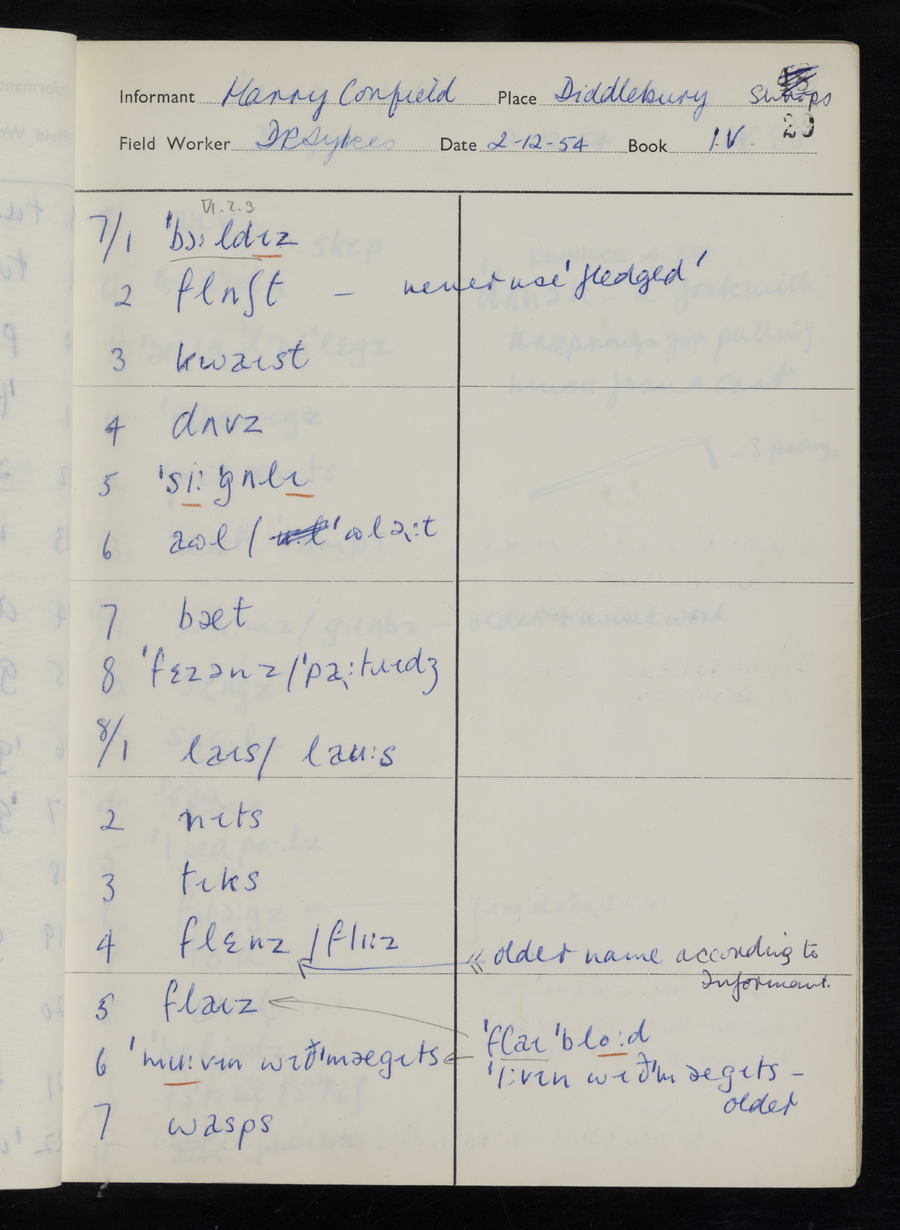 Informant Harry Confield Place Diddlebury Shrops
Field Worker D R Sykes Date 2-12-54 Book IV
29
VI.2.3
7/1 'bɔːldɪz
2 flʌʃt – never use 'fledged'
3 kwəɪst
4 dʌvz
5 'siː'gʌlɪ
6 aʊl / 'ʊləːt
7 bæt
8 'fɛzənz / 'pəːtɹɪdʒ
8/1 ləɪs / ləuːs
2 nɪts
3 tɪks
4 flɛɪnz / fliːz « older name according to
Informant.
5 fləɪz
'fləɪ 'bloːd
6 'muːvɪn wɪð'mægɪts
'lɪːvɪn wɪð'mægɪts –
older
7 wasps